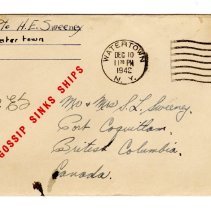 ℅ H.E. Sweeney
Watertown
WATERTOWN
DEC 10
11 PM
1942
N.Y.
GOSSIP SINKS SHIPS
Mr & Mrs S.L. Sweeney,
Port Coquitlam,
British Columbia,
Canada.